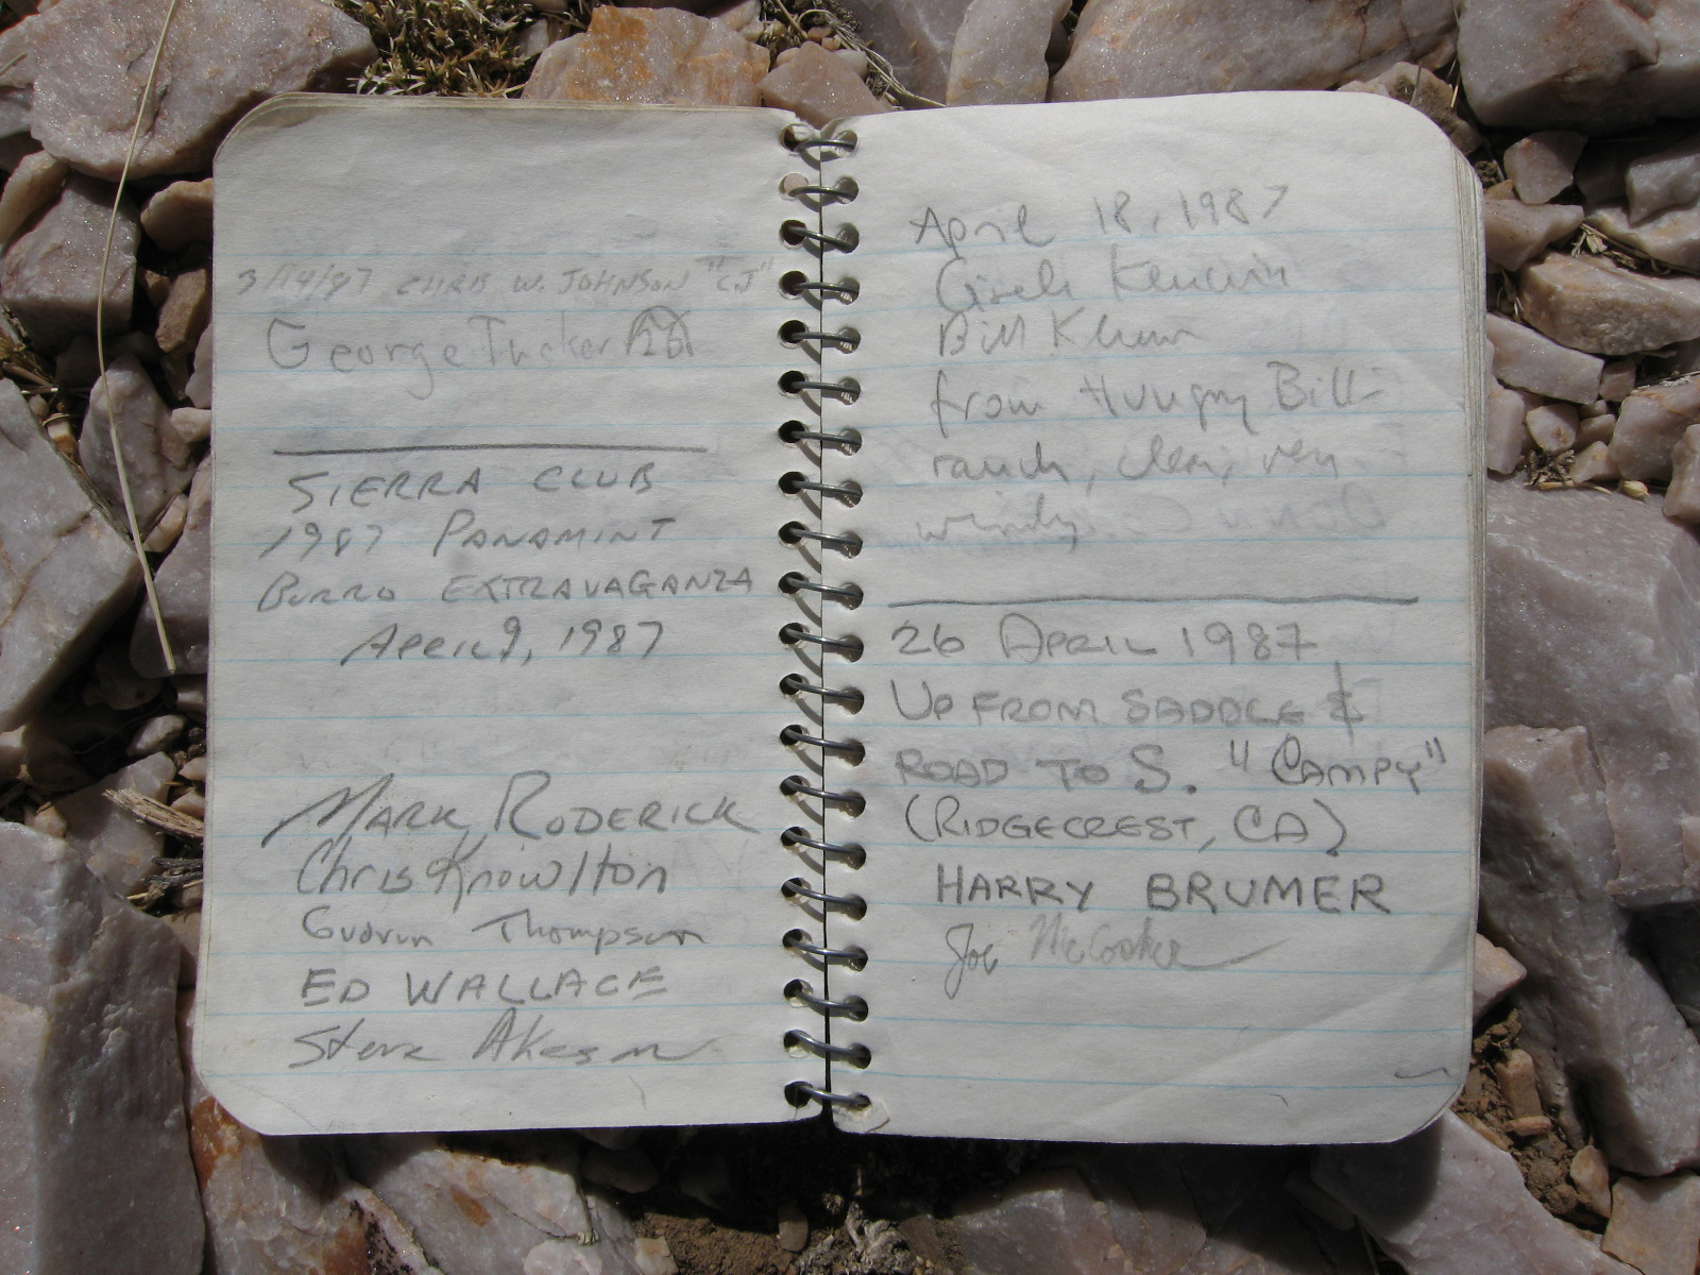 3/14/87 CHRIS W. JOHNSON "CJ"
George Tucker
SIERRA CLUB
1987 PANAMINT
BURRO EXTRAVAGANZA
APRIL 9, 1987
MARK RODERICK
Chris Knowlton
Gudrun Thompson
ED WALLACE
Steve Akeson
April 18, 1987
Bill
from Hungry Bill
ranch, clear, very
windy.
26 APRIL 1987
UP FROM SADDLE &
ROAD TO S. "CAMPY"
(RIDGECREST, CA)
HARRY BRUMER
Joe McCosker